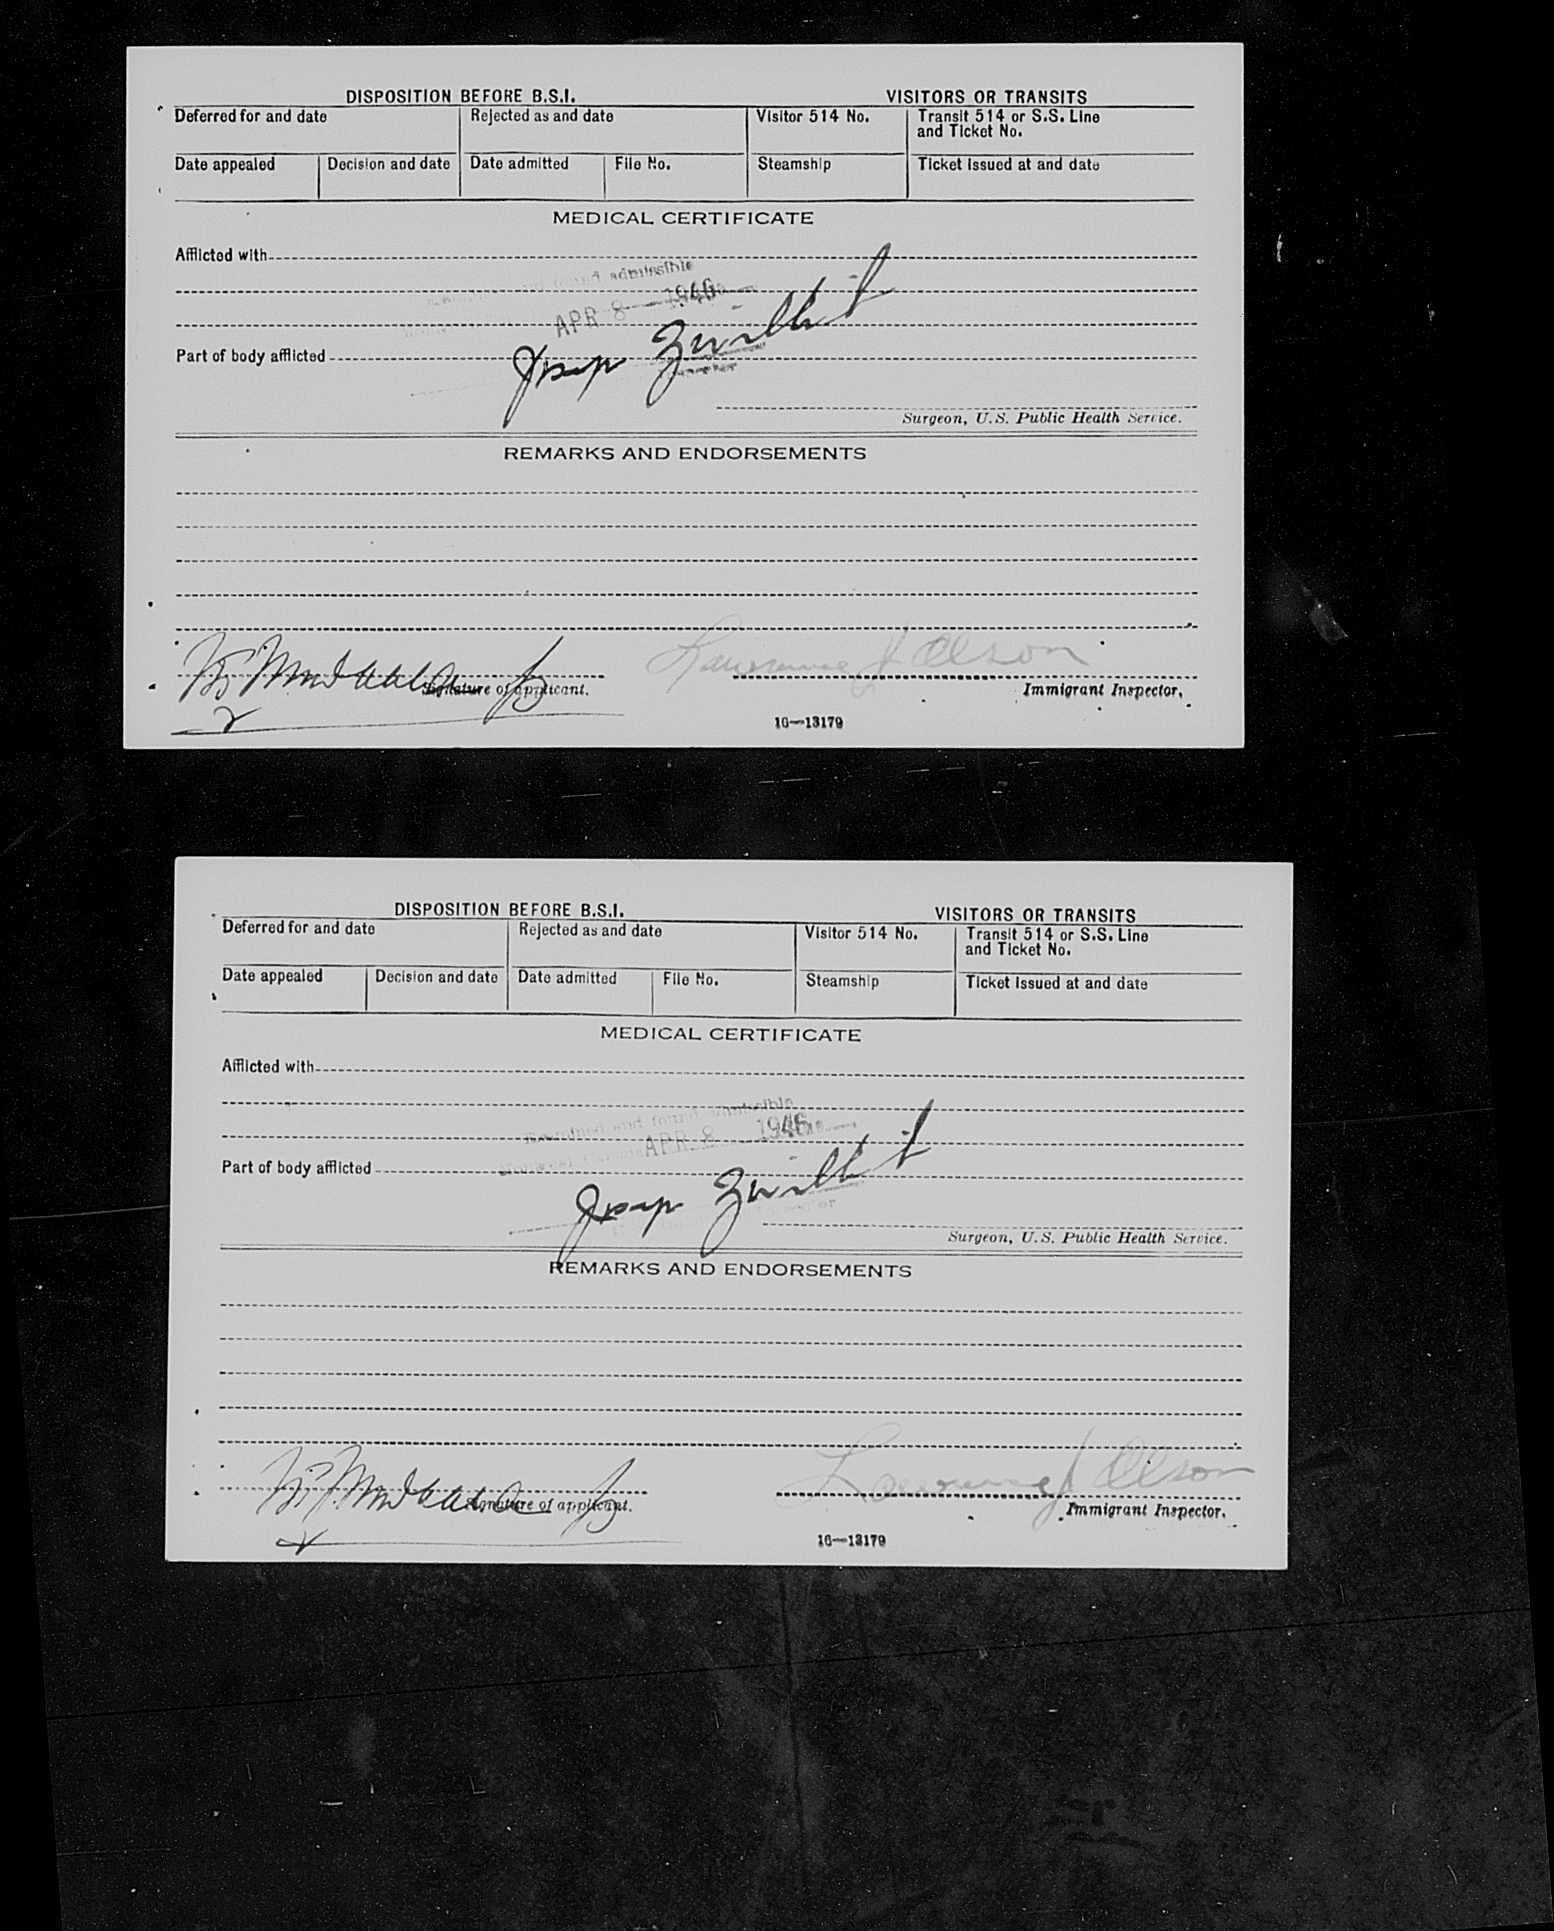 DISPOSITION BEFORE B.S.I.
VISITORS OR TRANSITS
Deferred for and date
Rejected as and date
Visitor 514 No.
Transit 514 or S.S. Line
and Ticket No.
Date appealed
Decision and date
Date admitted
File No.
Steamship
Ticket issued at and date
MEDICAL CERTIFICATE
Afflicted with
admissible
APR 8 1946
Part of body afflicted
Surgeon, U.S. Public Health Service.
REMARKS AND ENDORSEMENTS
Olson
Signature of applicant.
Immigrant Inspector.
16—13179
DISPOSITION BEFORE B.S.I.
VISITORS OR TRANSITS
Deferred for and date
Rejected as and date
Visitor 514 No.
Transit 514 or S.S. Line
and Ticket No.
Date appealed
Decision and date
Date admitted
File No.
Steamship
Ticket issued at and date
MEDICAL CERTIFICATE
Afflicted with
Examined and found admissible
APR 8 1946
Part of body afflicted
Surgeon, U.S. Public Health Service.
REMARKS AND ENDORSEMENTS
Olson
Signature of applicant.
Immigrant Inspector.
16—13179